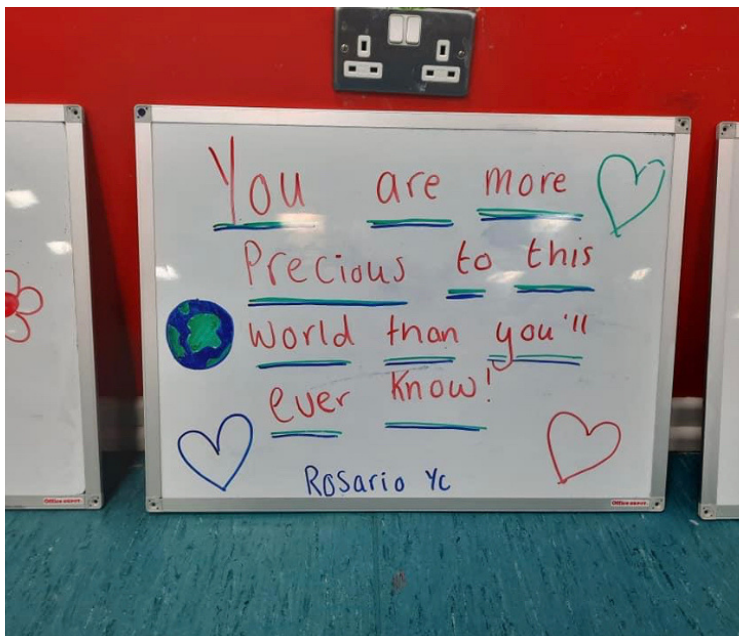 You are more
Precious to this
world than you'll
ever know!
Rosario Yc
Office DEPOT
Office DEPOT